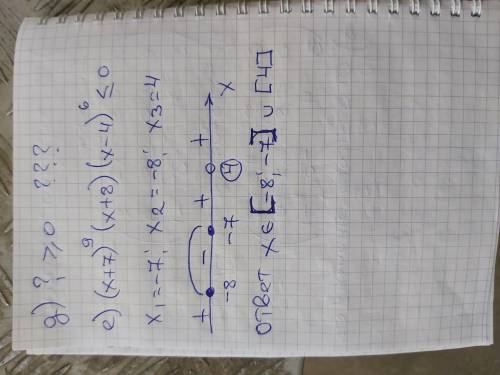 д) ? ≥ 0 ???
е) (x+7)⁹ (x+8) (x-4)⁶ ≤ 0
x₁=-7; x₂=-8; x₃=4
+ - + + x
-8 -7 4
ответ x∈[-8;-7] ∪ [4]